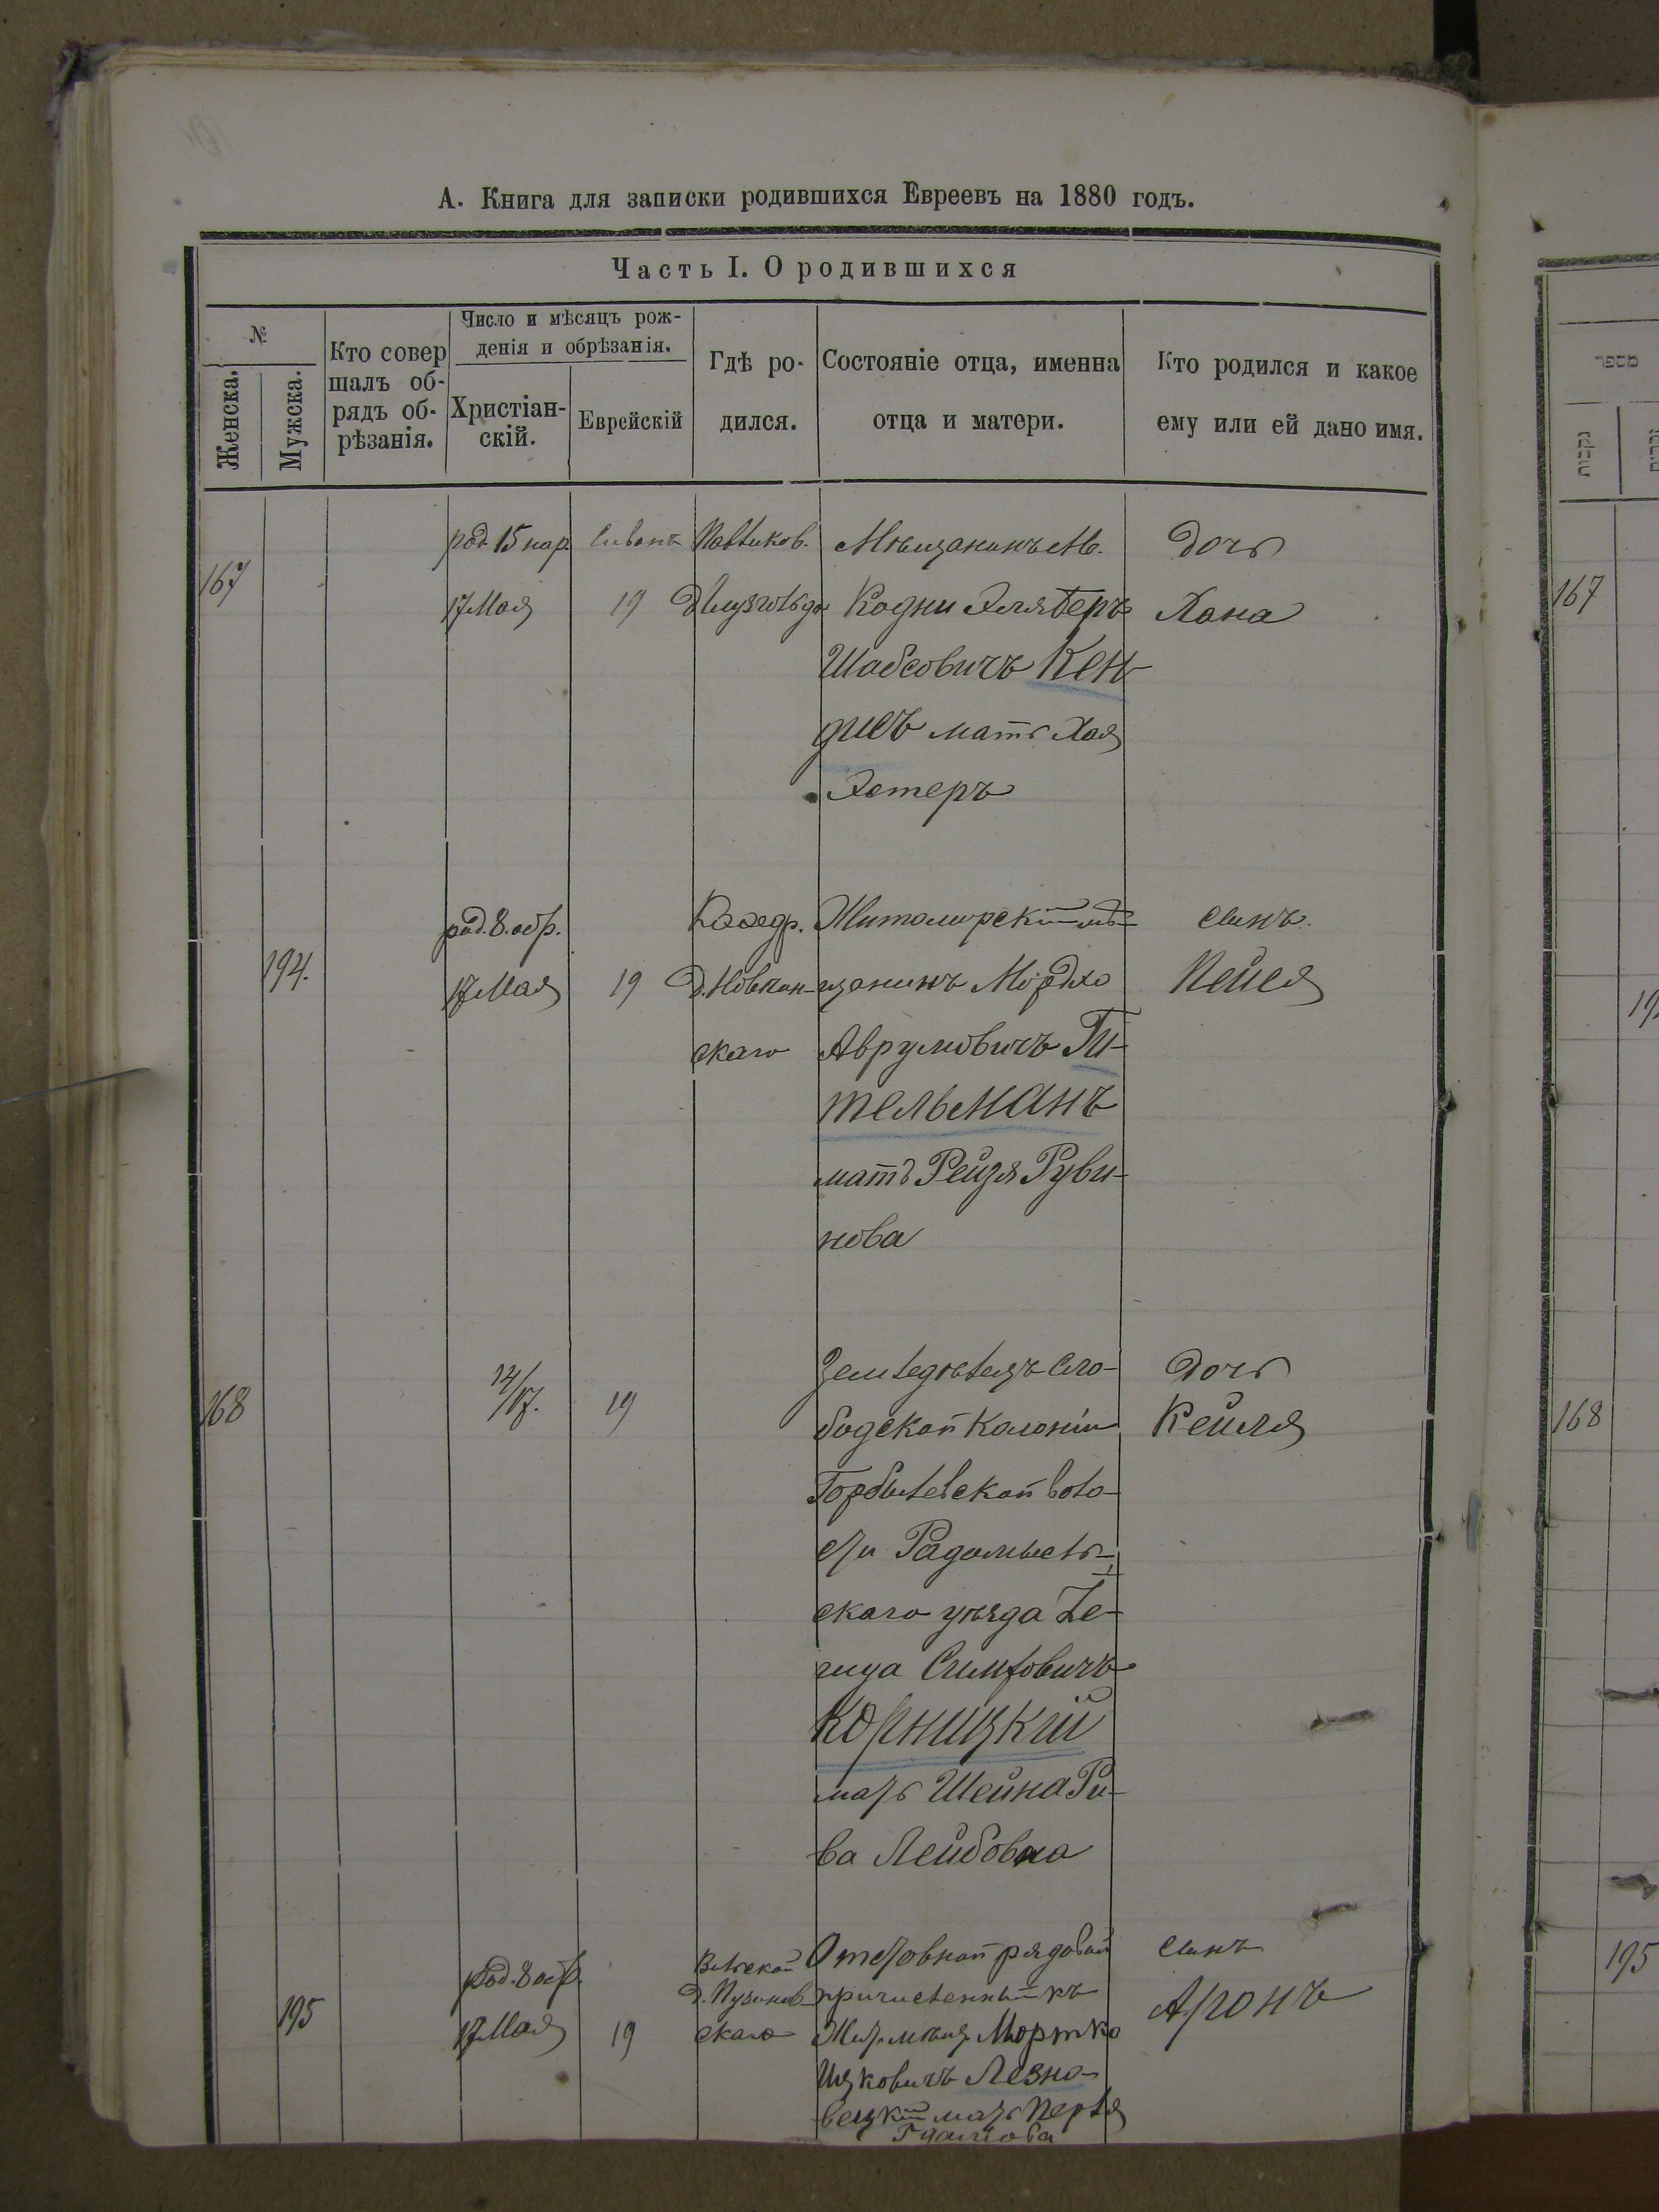 А. Книга для записки родившихся Евреевъ на 1880 годъ.
Часть I. О родившихся
№
Женска.
Мужска.
Кто совер
шалъ об-
рядъ об-
рѣзанія.
Число и мѣсяцъ рож-
денія и обрѣзанія.
Христіан-
скій.
Еврейскій
Гдѣ ро-
дился.
Состояніе отца, именна
отца и матери.
Кто родился и какое
ему или ей дано имя.
167
род 15 нар.
17 Мая
Сивант
19
Мѣщанинъ М.
Кодни Эллберъ
Шабсовичъ Кен-
дисъ мать Хая
Эстеръ
Дочь
Хана
194.
род. 8. обр.
17 Мая
19
Каөедр.
скаго
Житомирскій мѣ-
щанинъ Мордхо
Аврумовичъ Ги-
тельманъ
мать Рейзя Руви-
нова
сынъ.
Пейся
168
14/17.
19
Земледѣлецъ Сло-
бодской колоніи
Горбилевской воло-
сти Радомысль-
скаго уѣзда
Симховичъ
Корницкій
мать Шейна Ри-
ва Лейбовна
Дочь
Кейля
195
род. 8 обр.
17 Мая
19
Вильской
д. Пузинов-
скаго
Отставной рядовой
причисленный къ
Жит. мѣщ. Мортко
Ицковичъ Лезно-
вецкій мать Перля
сынъ
Аронъ
מספר
נקבות
167
168
195